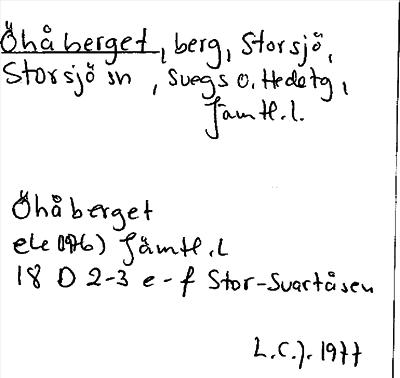 Öhåberget, berg, Storsjö,
Storsjö sn, Svegs o. Hedetg,
Jämtl.l.
Öhåberget
ele (1976) Jämtl.l
18 D 2-3 e-f Stor-Svartåsen
L.C.J. 1977